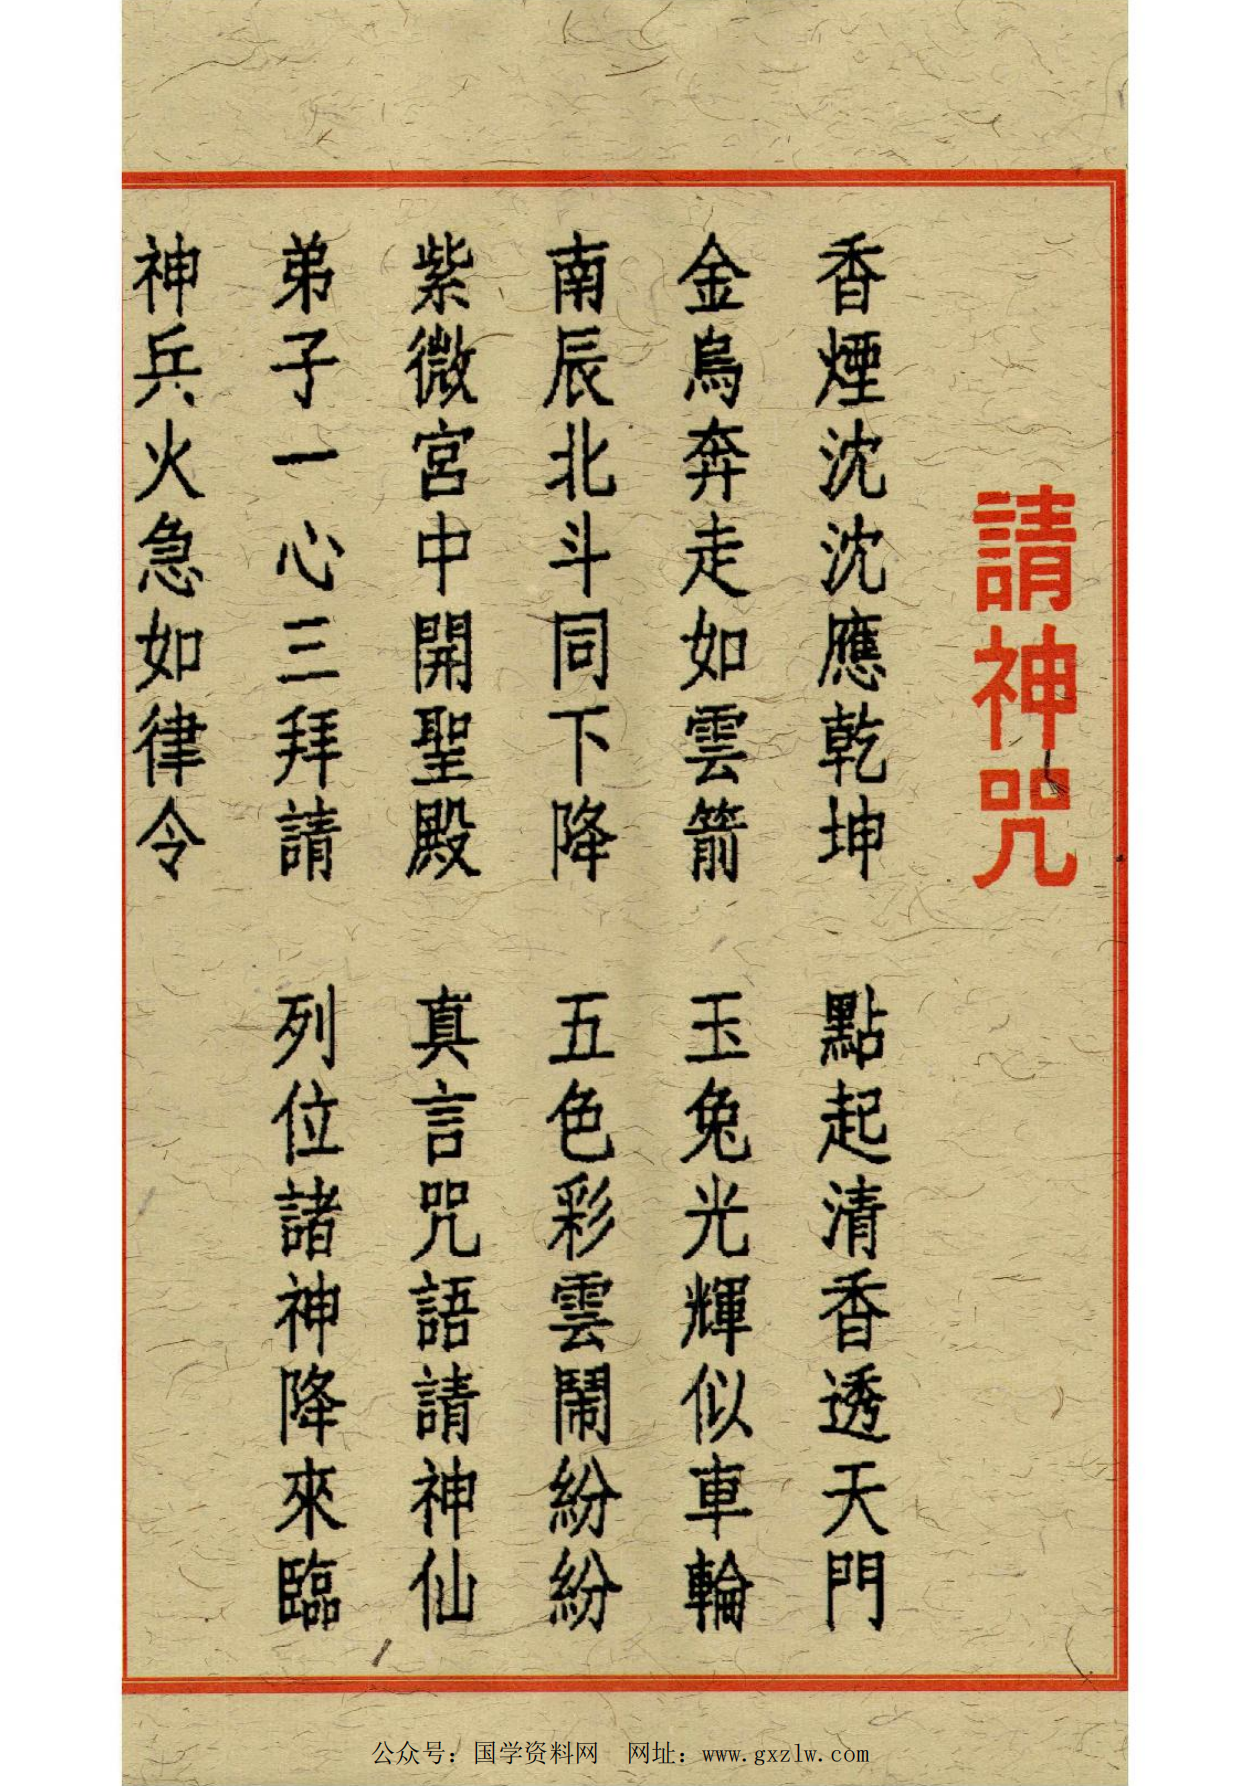 請神咒
香煙沈沈應乾坤　點起清香透天門
金烏奔走如雲箭　玉兔光輝似車輪
南辰北斗同下降　五色彩雲鬧紛紛
紫微宮中開聖殿　真言咒語請神仙
弟子一心三拜請　列位諸神降來臨
神兵火急如律令
公众号：国学资料网　网址：www.gxzlw.com